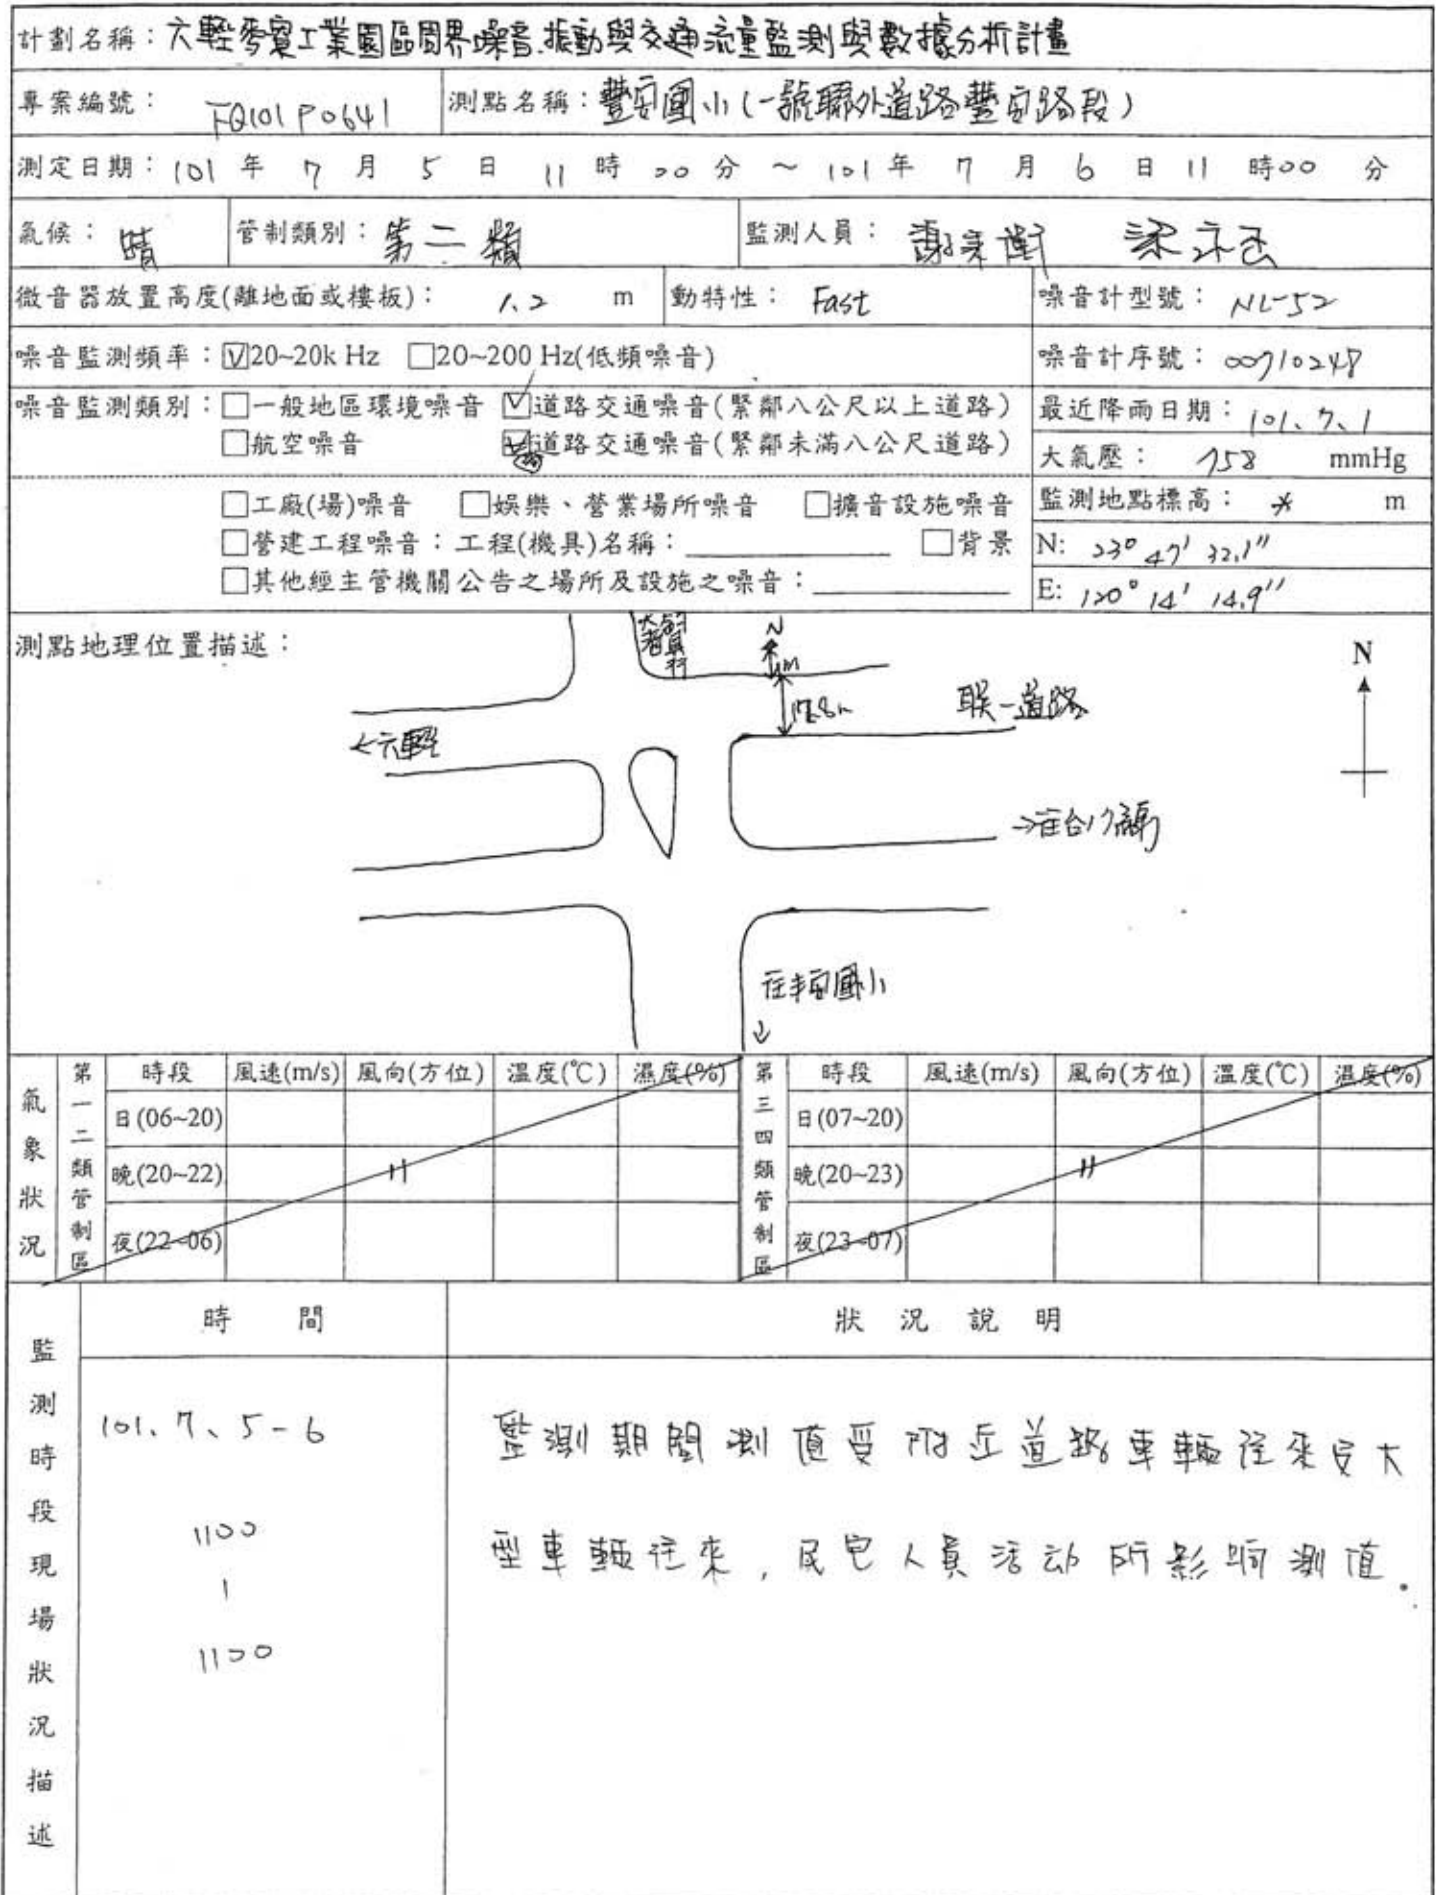 計劃名稱：六輕麥寮工業園區周界噪音.振動與交通流量監測與數據分析計畫
專案編號： FQ101P0641 測點名稱：豐安國小(一號聯外道路豐安路段)
測定日期：101 年 7 月 5 日 11 時 00 分 ~ 101 年 7 月 6 日 11 時00 分
氣候：晴 管制類別：第二類 監測人員：
微音器放置高度(離地面或樓板)： 1.2 m 動特性： Fast 噪音計型號： NL-52
噪音監測頻率：☑20~20k Hz □20~200 Hz(低頻噪音) 噪音計序號：00710248
噪音監測類別：□一般地區環境噪音 ☑道路交通噪音(緊鄰八公尺以上道路) 最近降雨日期：101、7、1
□航空噪音 道路交通噪音(緊鄰未滿八公尺道路) 大氣壓： 758 mmHg
□工廠(場)噪音 □娛樂、營業場所噪音 □擴音設施噪音 監測地點標高： * m
□營建工程噪音：工程(機具)名稱： □背景 N: 23° 47' 32.1"
□其他經主管機關公告之場所及設施之噪音： E: 120° 14' 14.9"
測點地理位置描述：
N
1m
17.8m
联一道路
N
←六輕
→往台17
往丰安國小
↓
氣象狀況 第一二類管制區 時段 風速(m/s) 風向(方位) 溫度(℃) 濕度(%) 第三四類管制區 時段 風速(m/s) 風向(方位) 溫度(℃) 濕度(%)
日(06~20) 日(07~20)
晚(20~22) 晚(20~23)
夜(22~06) 夜(23~07)
監測時段現場狀況描述
時 間 狀 況 說 明
101、7、5-6 監測期間測值受附近道路車輛往來及大
1100 型車輛往來，民宅人員活动所影响測值.
|
1100